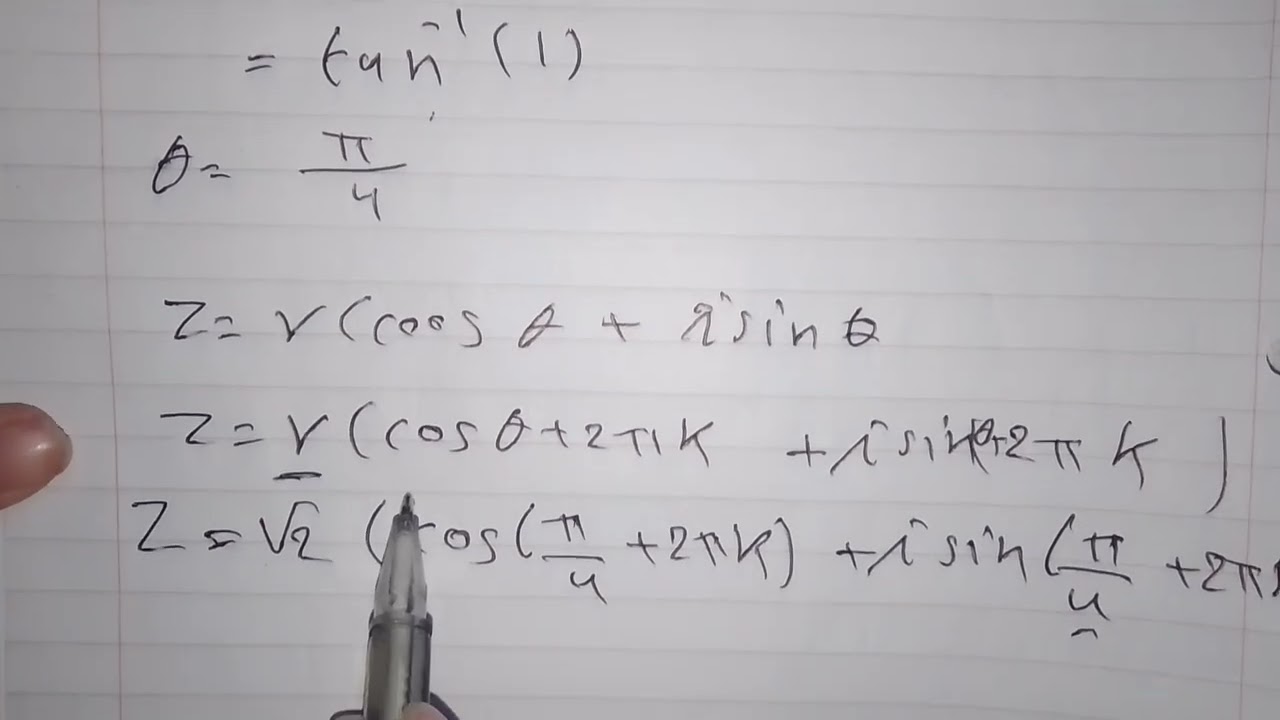 = tan⁻¹(1)
θ = π/4
Z = r(cos θ + i sin θ
Z = r(cos θ+2πK + i sin θ+2πK)
Z = √2 (cos(π/4 + 2πK) + i sin(π/4 + 2π